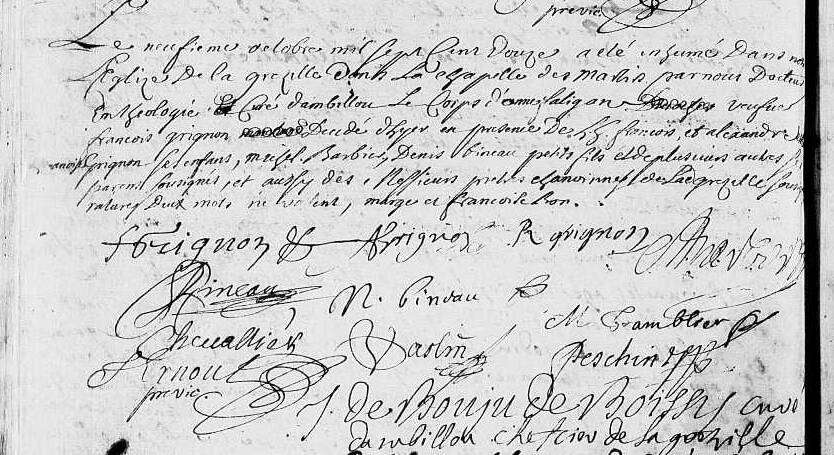 previc.
Le neufieme octobre mil sept Cent douze a eté inhumé Dans n
L'Eglize De la grezille dans La chapelle des Marbis par nous Docteur
En theologie Curé d'ambillou Le Corps d'anne Saligan veufue
francois grignon Decedé d'hyer en presence De francois et alexandre
grignon ses enfans, Michel Barbier, Denis bineau petits fils et de plusieurs autres
parens sousignés, et aussy des Messieurs prestres chanoines de La grezille
ratures Deux mots ne valent, marge et francois le bon.
f Grignon A grignon R grignon
Bineau N. bineau
Chevallier M
Arnoul Peschin
previc. J. de Bouju de Boissy curé
dambillou chefcier de la grezille